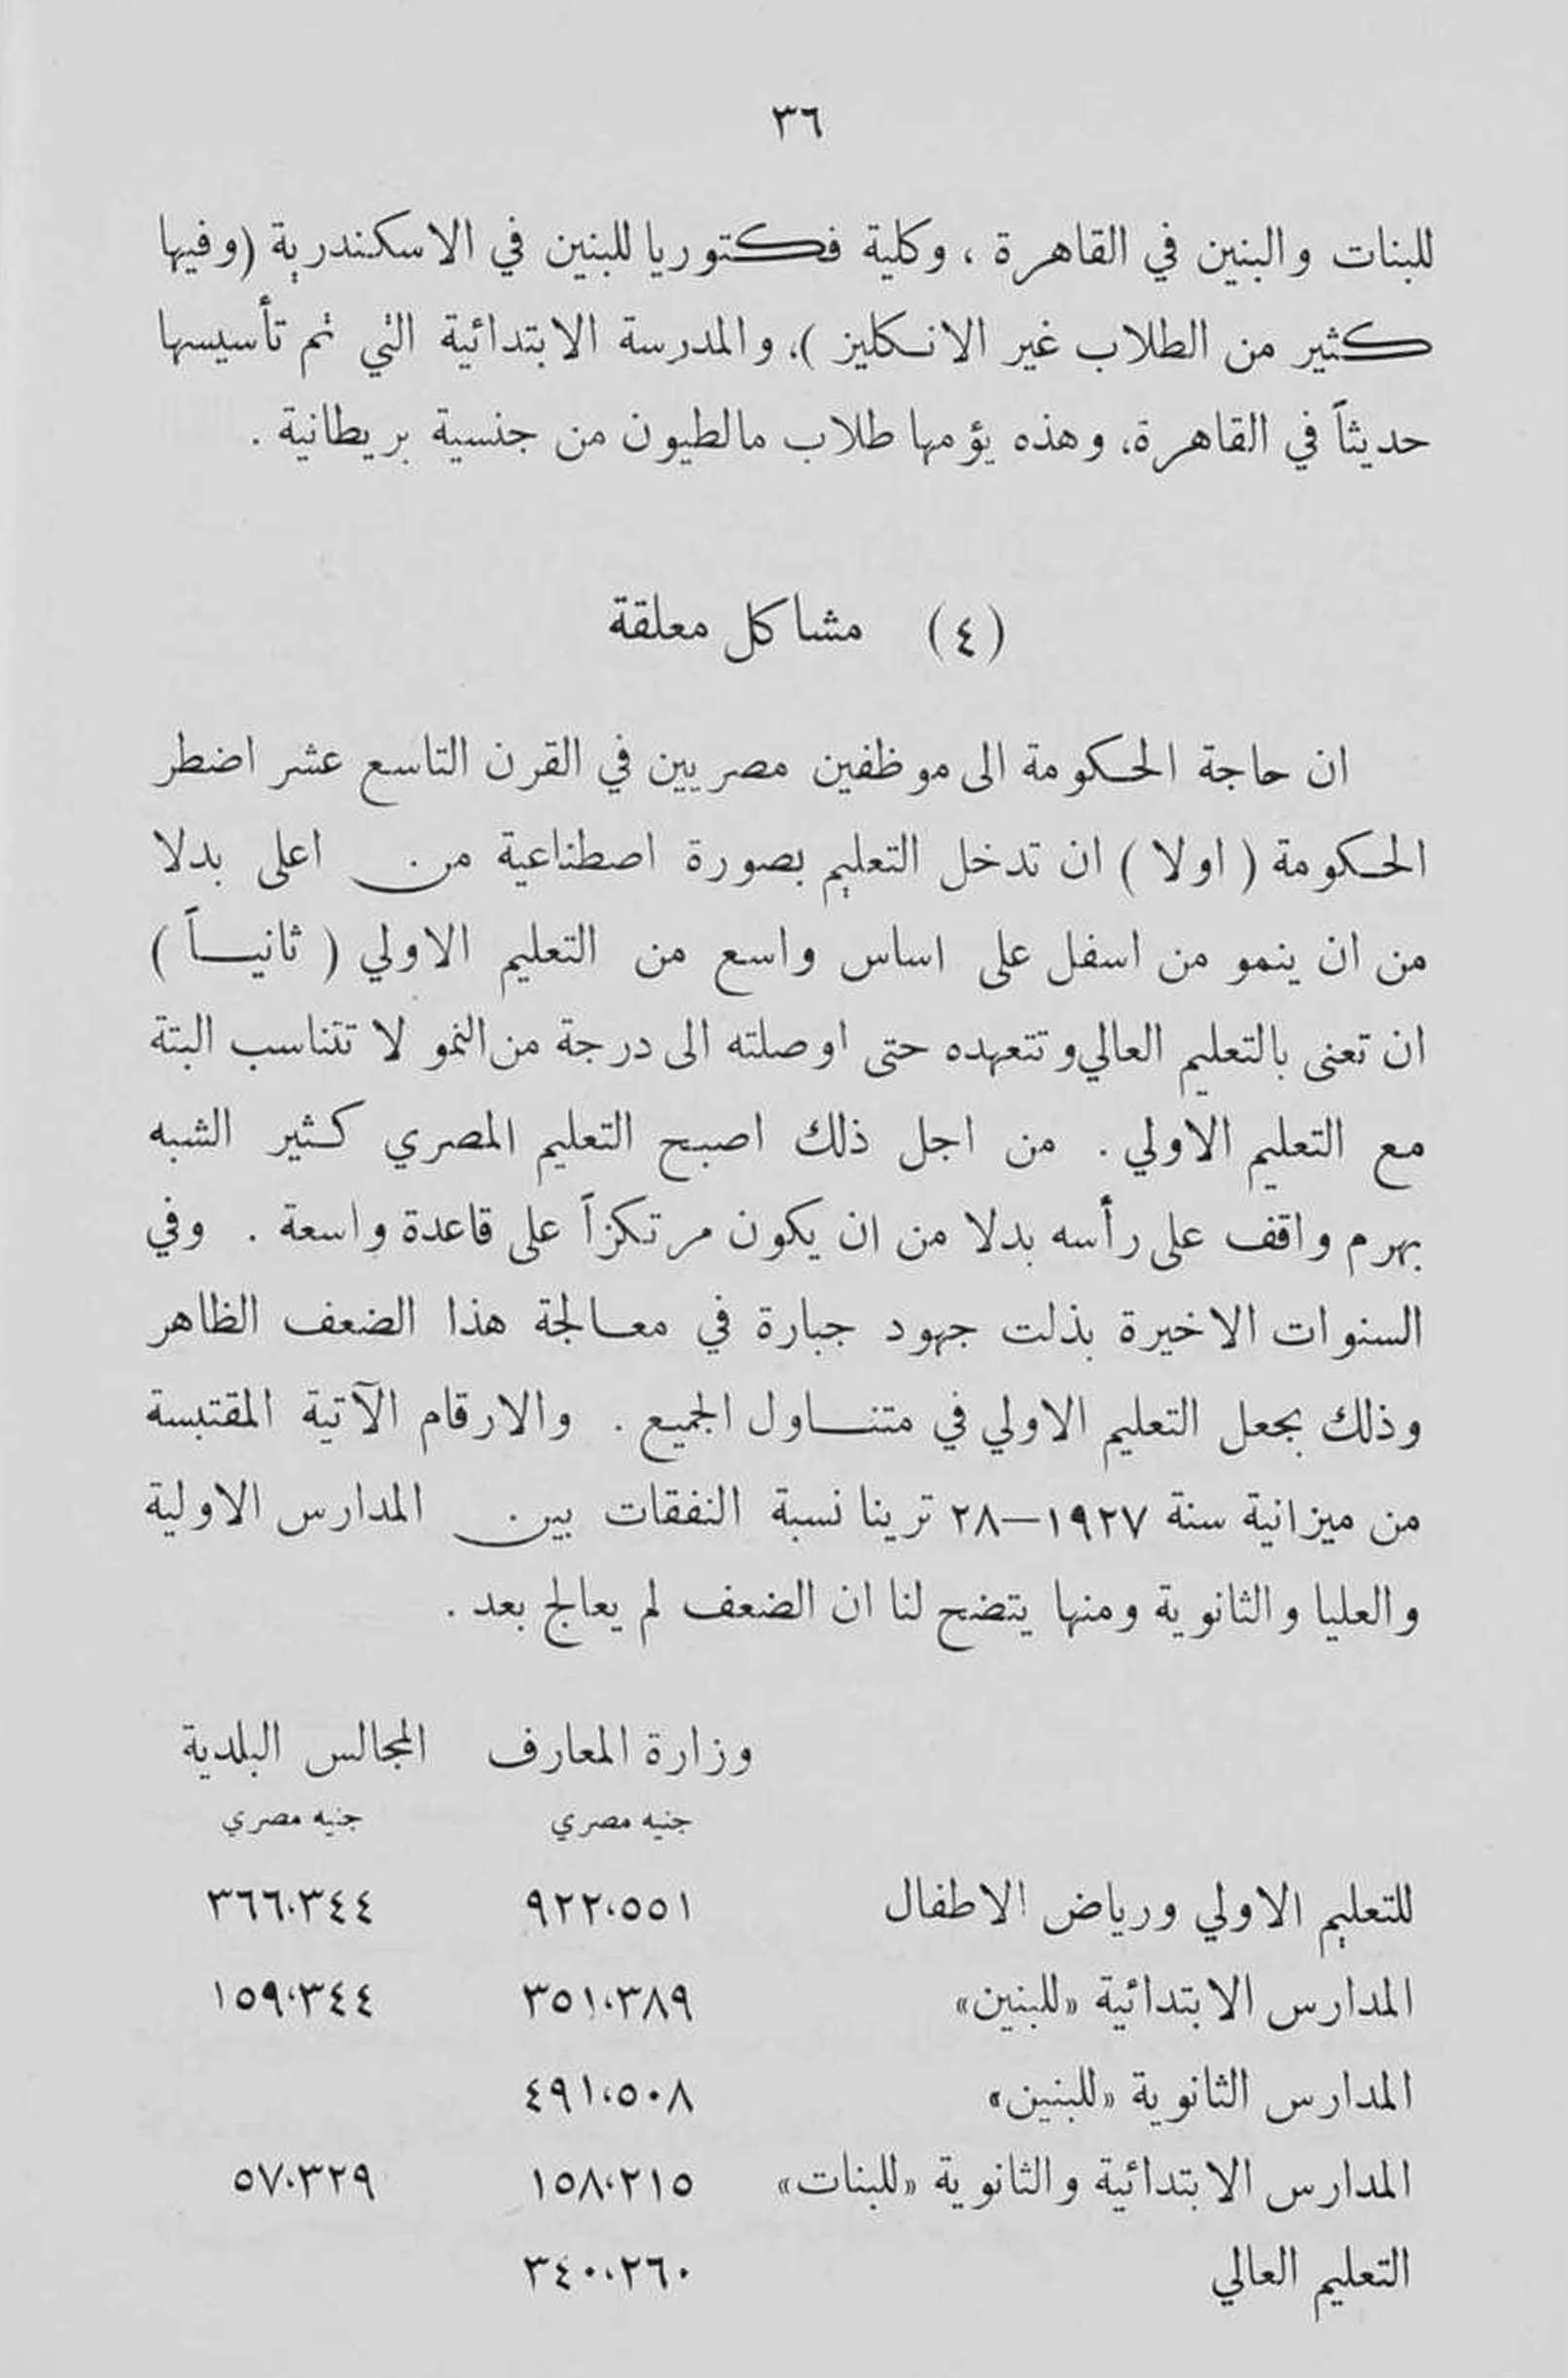 ٣٦
للبنات والبنين في القاهرة ، وكلية فكتوريا للبنين في الاسكندرية (وفيها
كثير من الطلاب غير الانكليز )، والمدرسة الابتدائية التي تم تأسيسها
حديثاً في القاهرة، وهذه يؤمها طلاب مالطيون من جنسية بريطانية .
(٤) مشاكل معلقة
ان حاجة الحكومة الى موظفين مصريين في القرن التاسع عشر اضطر
الحكومة ( اولا ) ان تدخل التعليم بصورة اصطناعية من اعلى بدلا
من ان ينمو من اسفل على اساس واسع من التعليم الاولي ( ثانيـــاً )
ان تعنى بالتعليم العالي وتتعهده حتى اوصلته الى درجة من النمو لا تتناسب البتة
مع التعليم الاولي . من اجل ذلك اصبح التعليم المصري كثير الشبه
بهرم واقف على رأسه بدلا من ان يكون مرتكزاً على قاعدة واسعة . وفي
السنوات الاخيرة بذلت جهود جبارة في معـالجة هذا الضعف الظاهر
وذلك بجعل التعليم الاولي في متنـــاول الجميع . والارقام الآتية المقتبسة
من ميزانية سنة ١٩٢٧—٢٨ ترينا نسبة النفقات بين المدارس الاولية
والعليا والثانوية ومنها يتضح لنا ان الضعف لم يعالج بعد .
وزارة المعارف المجالس البلدية
جنيه مصري جنيه مصري
للتعليم الاولي ورياض الاطفال ٩٢٢،٥٥١ ٣٦٦،٣٤٤
المدارس الابتدائية «للبنين» ٣٥١،٣٨٩ ١٥٩،٣٤٤
المدارس الثانوية «للبنين» ٤٩١،٥٠٨
المدارس الابتدائية والثانوية «للبنات» ١٥٨،٢١٥ ٥٧،٣٢٩
التعليم العالي ٣٤٠،٢٦٠